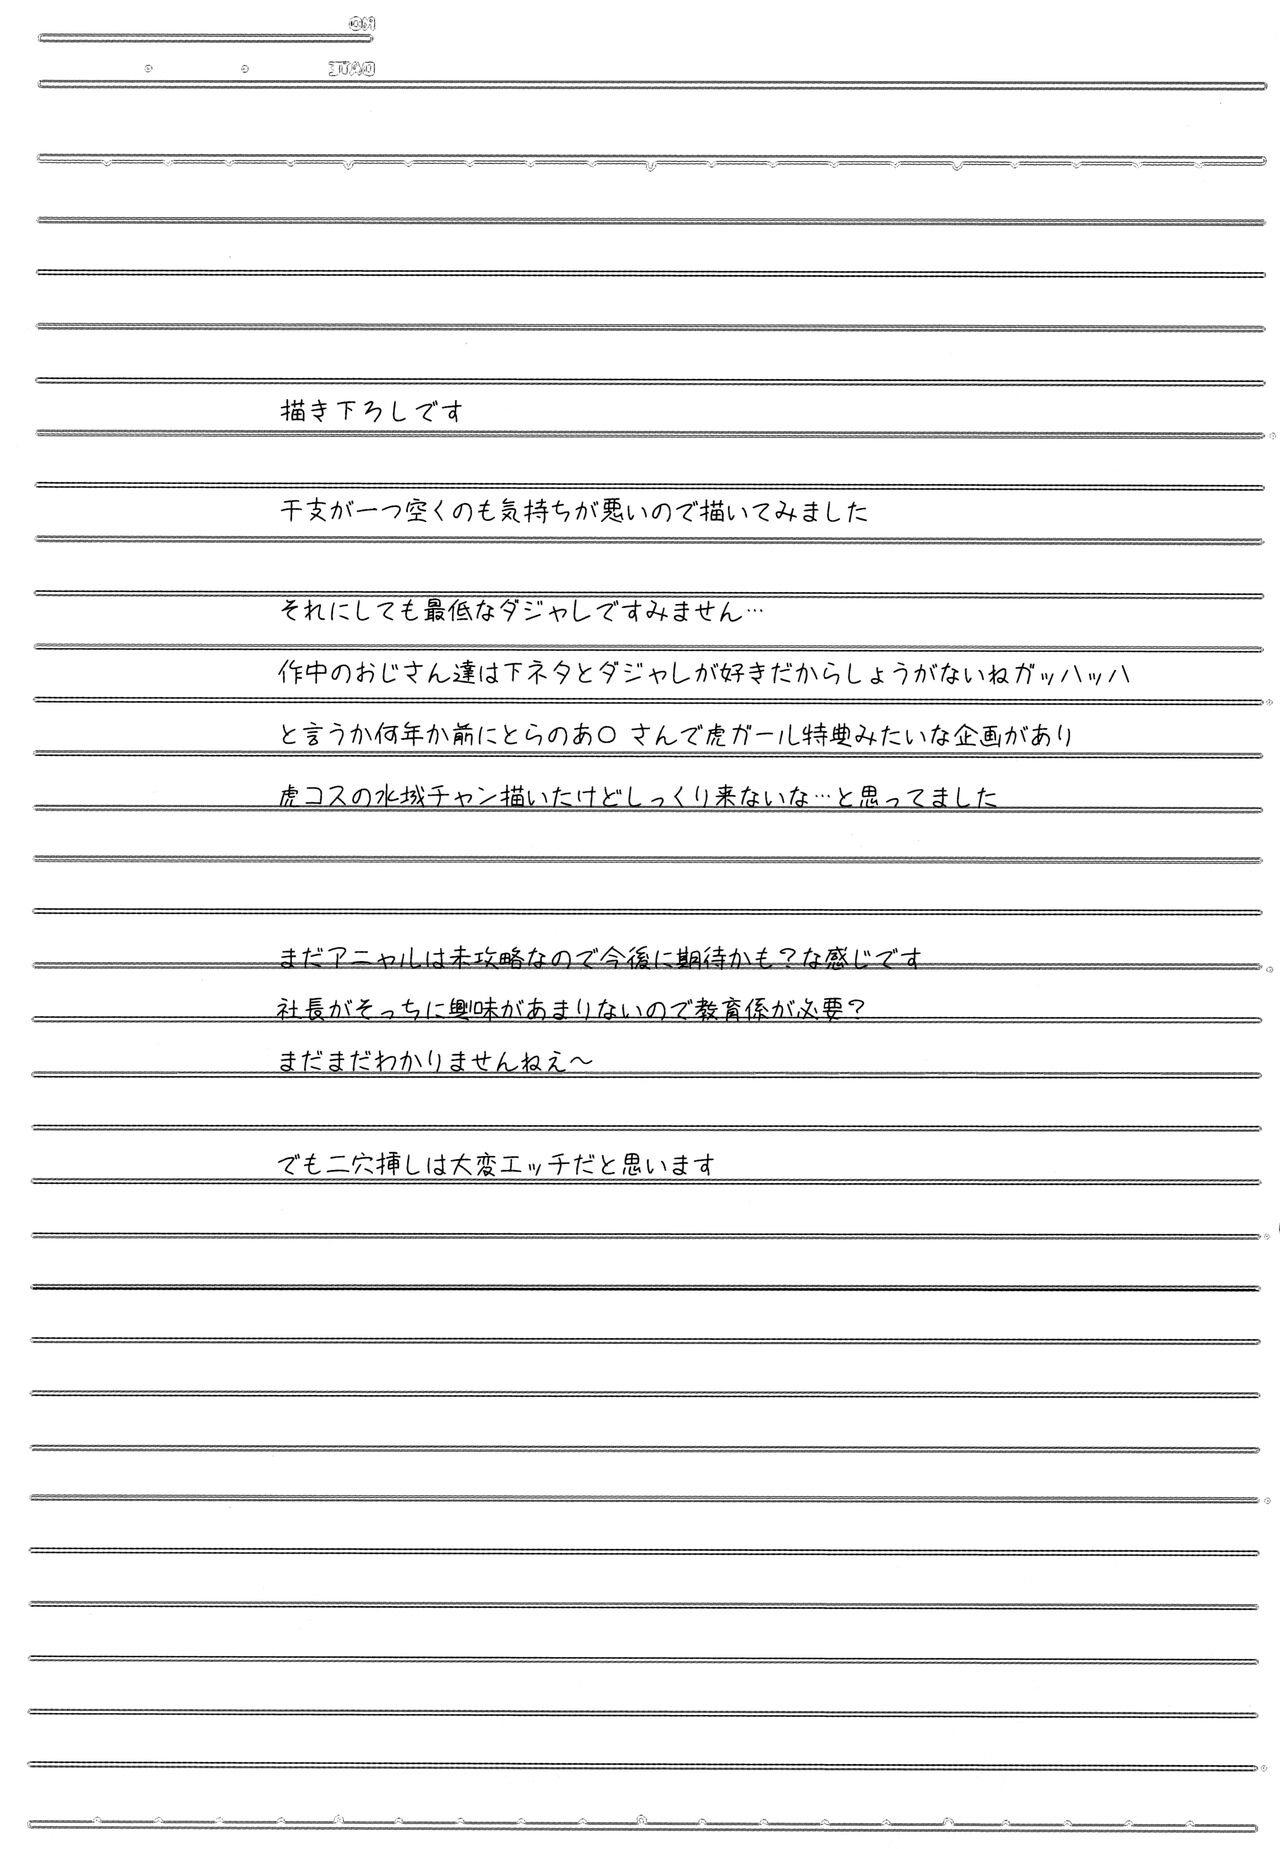 NO
DATE
描き下ろしです
干支が一つ空くのも気持ちが悪いので描いてみました
それにしても最低なダジャレですみません…
作中のおじさん達は下ネタとダジャレが好きだからしょうがないねガッハッハ
と言うか何年か前にとらのあ〇さんで虎ガール特典みたいな企画があり
虎コスの水城チャン描いたけどしっくり来ないな…と思ってました
まだアニャルは未攻略なので今後に期待かも？な感じです
社長がそっちに興味があまりないので教育係が必要？
まだまだわかりませんねえ～
でも二穴挿しは大変エッチだと思います